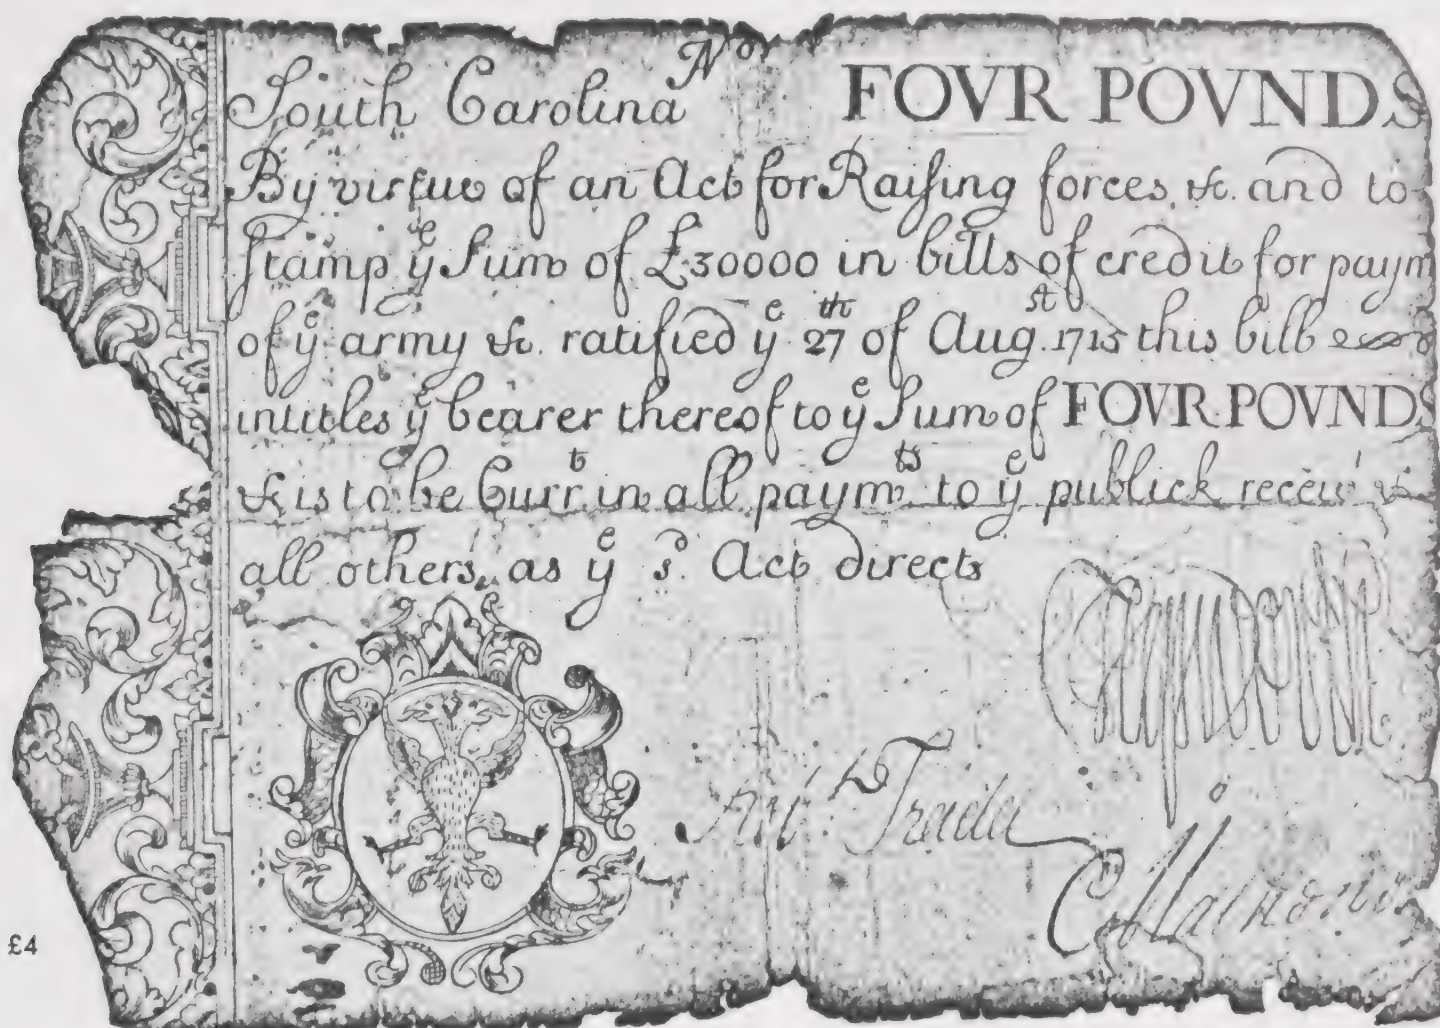 South Carolina Nº FOVR POVNDS
By virtue of an Act for Raiſing forces, &c. and to
ſtamp yᵉ Sum of £30000 in bills of credit for paym
of yᵉ army &c. ratified yᵉ 27ᵗʰ of Augˢᵗ 1715 this bill
intitles yᵉ bearer thereof to yᵉ Sum of FOVR POVNDS
& is to be Currᵗ in all paymᵗˢ to yᵉ publick receiv &
all others, as yᵉ sᵈ. Act directs
£4